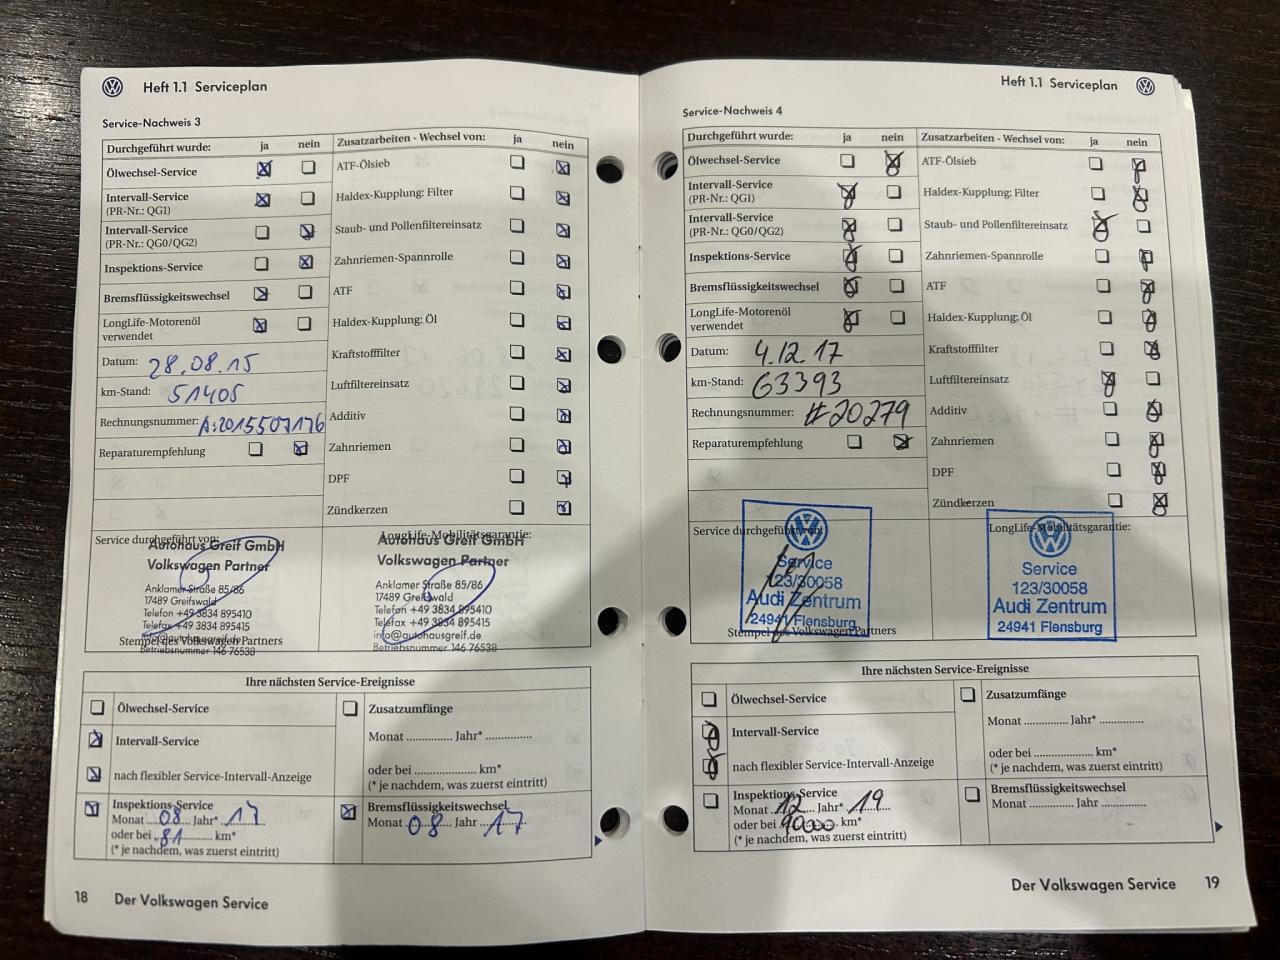 Heft 1.1 Serviceplan
Service-Nachweis 3
Durchgeführt wurde: ja nein
Ölwechsel-Service
Intervall-Service
(PR-Nr.: QG1)
Intervall-Service
(PR-Nr.: QG0/QG2)
Inspektions-Service
Bremsflüssigkeitswechsel
LongLife-Motorenöl
verwendet
Datum: 28.08.15
km-Stand: 51405
Rechnungsnummer: A:2015507176
Reparaturempfehlung
Zusatzarbeiten - Wechsel von: ja nein
ATF-Ölsieb
Haldex-Kupplung: Filter
Staub- und Pollenfiltereinsatz
Zahnriemen-Spannrolle
ATF
Haldex-Kupplung: Öl
Kraftstofffilter
Luftfiltereinsatz
Additiv
Zahnriemen
DPF
Zündkerzen
Service durchgeführt von:
Autohaus Greif GmbH
Volkswagen Partner
Anklamer Straße 85/86
17489 Greifswald
Telefon +49 3834 895410
Telefax +49 3834 895415
info@autohausgreif.de
Stempel des Volkswagen Partners
Betriebsnummer 146 76538
LongLife-Mobilitätsgarantie:
Autohaus Greif GmbH
Volkswagen Partner
Anklamer Straße 85/86
17489 Greifswald
Telefon +49 3834 895410
Telefax +49 3834 895415
info@autohausgreif.de
Betriebsnummer 146 76538
Ihre nächsten Service-Ereignisse
Ölwechsel-Service
Intervall-Service
nach flexibler Service-Intervall-Anzeige
Inspektions-Service
Monat 08 Jahr* 17
oder bei 81 km*
(* je nachdem, was zuerst eintritt)
Zusatzumfänge
Monat .............. Jahr* ...............
oder bei .................... km*
(* je nachdem, was zuerst eintritt)
Bremsflüssigkeitswechsel
Monat 08 Jahr 17
18 Der Volkswagen Service
Heft 1.1 Serviceplan
Service-Nachweis 4
Durchgeführt wurde: ja nein
Ölwechsel-Service
Intervall-Service
(PR-Nr.: QG1)
Intervall-Service
(PR-Nr.: QG0/QG2)
Inspektions-Service
Bremsflüssigkeitswechsel
LongLife-Motorenöl
verwendet
Datum: 4.12.17
km-Stand: 63393
Rechnungsnummer: #20279
Reparaturempfehlung
Zusatzarbeiten - Wechsel von: ja nein
ATF-Ölsieb
Haldex-Kupplung: Filter
Staub- und Pollenfiltereinsatz
Zahnriemen-Spannrolle
ATF
Haldex-Kupplung: Öl
Kraftstofffilter
Luftfiltereinsatz
Additiv
Zahnriemen
DPF
Zündkerzen
Service durchgeführt von:
Service
123/30058
Audi Zentrum
24941 Flensburg
Stempel des Volkswagen Partners
LongLife-Mobilitätsgarantie:
Service
123/30058
Audi Zentrum
24941 Flensburg
Ihre nächsten Service-Ereignisse
Ölwechsel-Service
Intervall-Service
nach flexibler Service-Intervall-Anzeige
Inspektions-Service
Monat 12 Jahr* 19
oder bei 90000 km*
(* je nachdem, was zuerst eintritt)
Zusatzumfänge
Monat .............. Jahr* ..............
oder bei .................... km*
(* je nachdem, was zuerst eintritt)
Bremsflüssigkeitswechsel
Monat .............. Jahr ..............
Der Volkswagen Service 19